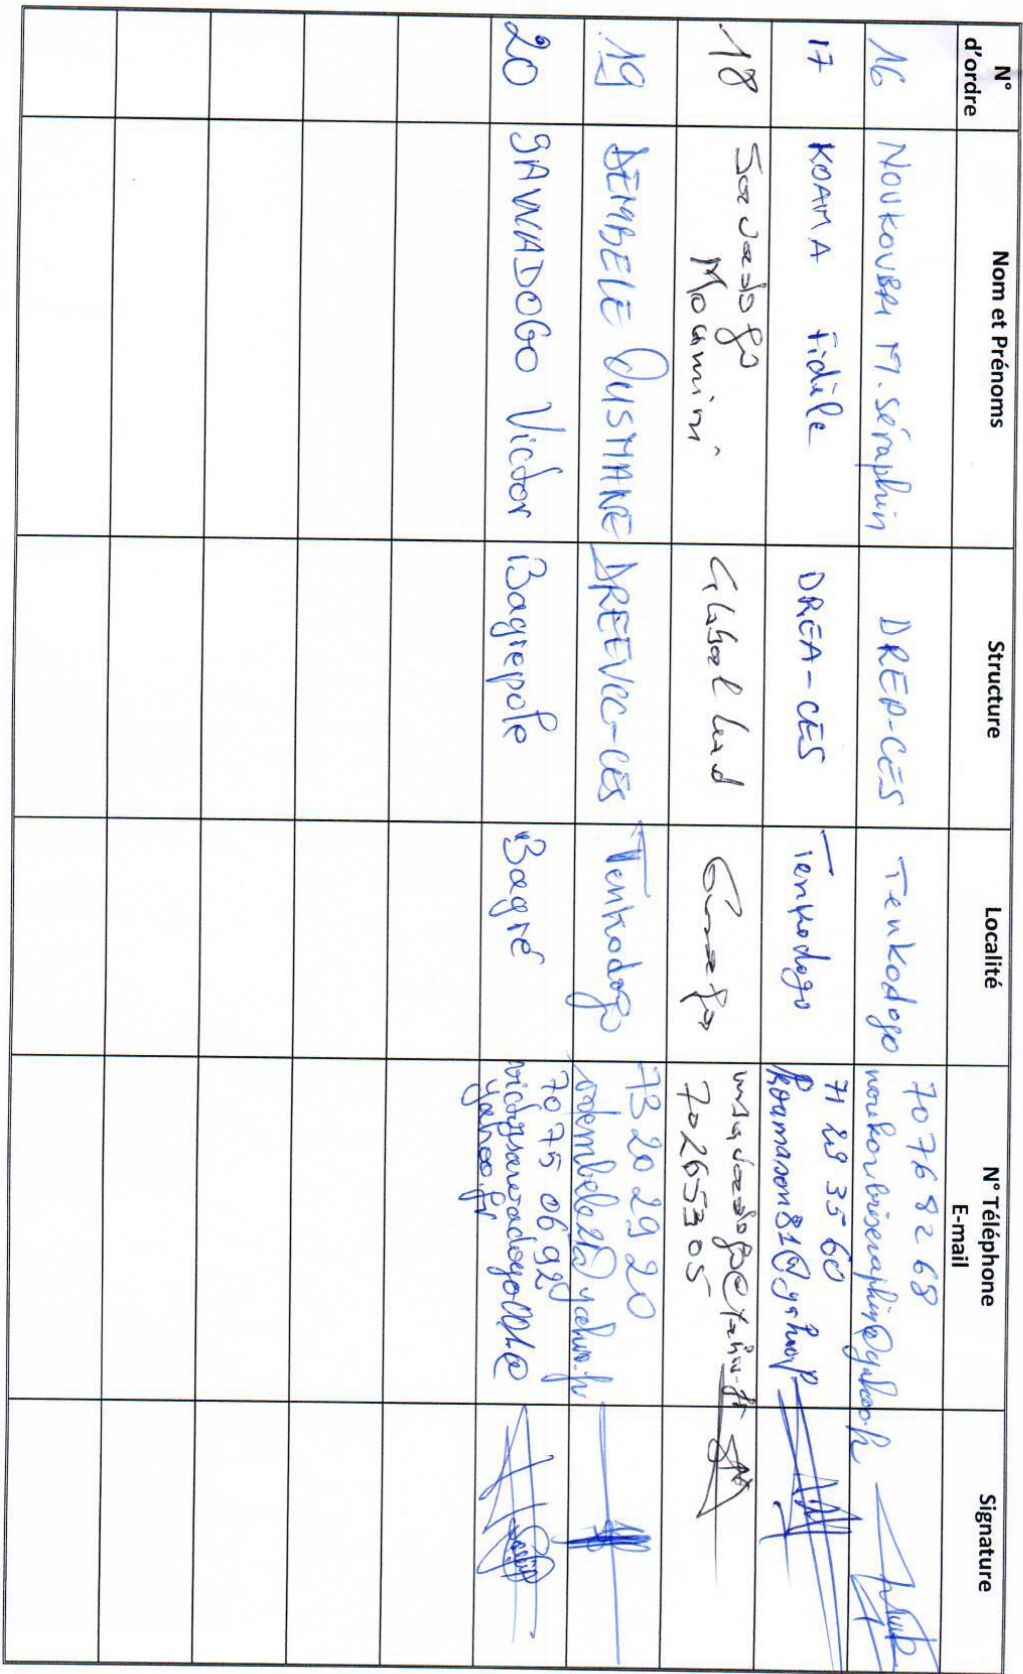 N° d'ordre
Nom et Prénoms
Structure
Localité
N° Téléphone
E-mail
Signature
16 NOUKOUBRI M. Séraphin DREP-CES Tenkodogo 70 76 82 68
noukoubriseraphin@yahoo.fr
17 KOAMA Fidèle DREA-CES Tenkodogo 71 29 35 60
koamason81@yahoo.fr
18 Sawadogo Moumini Global Lead msawadogo@yahoo.fr
70265305
19 DEMBELE OUSMANE DREEVCC-CES Tenkodogo 73 20 29 20
odembele2@yahoo.fr
20 SAWADOGO Victor Bagrepole Bagré 70 75 06 92
victorsawadogo001@
yahoo.fr